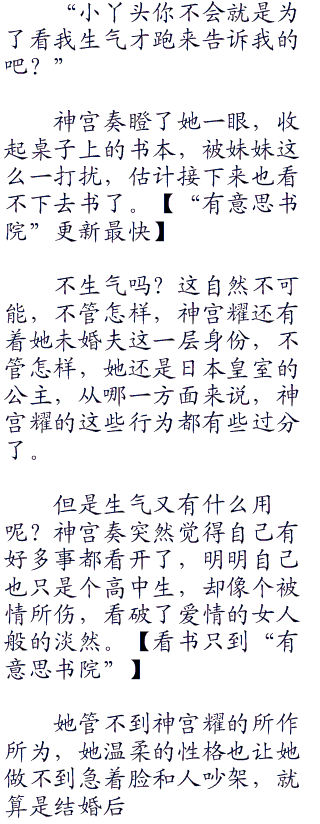 “小丫头你不会就是为
了看我生气才跑来告诉我的
吧？”
神宫奏瞪了她一眼，收
起桌子上的书本，被妹妹这
么一打扰，估计接下来也看
不下去书了。【“有意思书
院”更新最快】
不生气吗？这自然不可
能，不管怎样，神宫耀还有
着她未婚夫这一层身份，不
管怎样，她还是日本皇室的
公主，从哪一方面来说，神
宫耀的这些行为都有些过分
了。
但是生气又有什么用
呢？神宫奏突然觉得自己有
好多事都看开了，明明自己
也只是个高中生，却像个被
情所伤，看破了爱情的女人
般的淡然。【看书只到“有
意思书院”】
她管不到神宫耀的所作
所为，她温柔的性格也让她
做不到急着脸和人吵架，就
算是结婚后